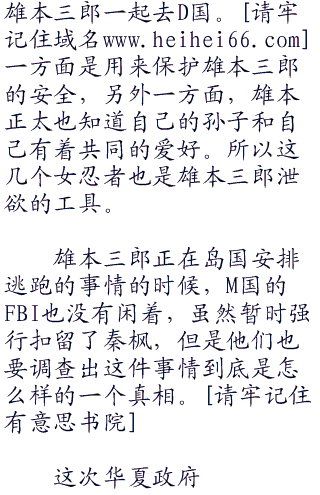 雄本三郎一起去D国。[请牢
记住域名www.heihei66.com]
一方面是用来保护雄本三郎
的安全，另外一方面，雄本
正太也知道自己的孙子和自
己有着共同的爱好。所以这
几个女忍者也是雄本三郎泄
欲的工具。
雄本三郎正在岛国安排
逃跑的事情的时候，M国的
FBI也没有闲着，虽然暂时强
行扣留了秦枫，但是他们也
要调查出这件事情到底是怎
么样的一个真相。[请牢记住
有意思书院]
这次华夏政府